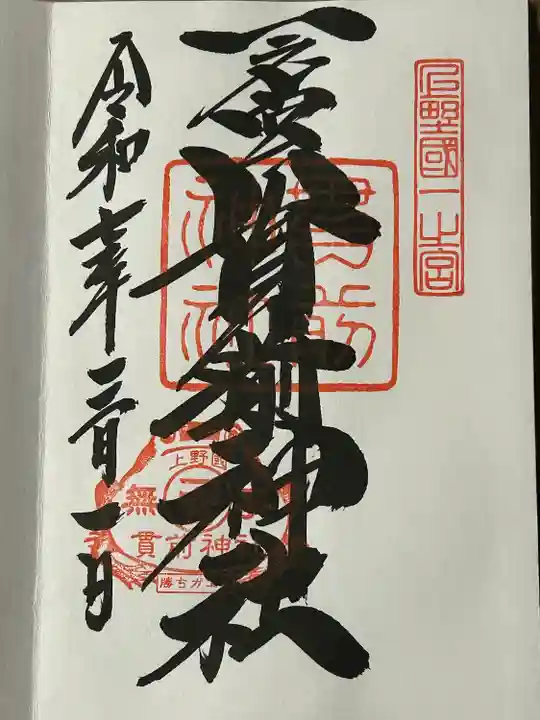 上野國一之宮
一之宮貫前神社
貫前神社
令和七年月一日
上野國
無
貫前神社
勝ちガエル